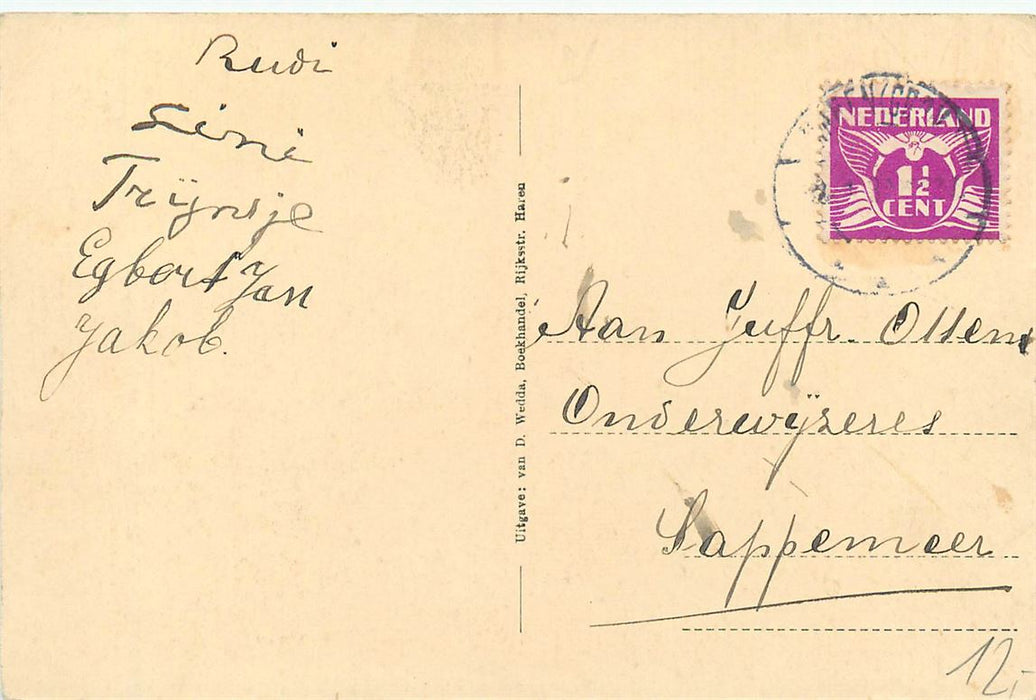 Rudi
Sini
Trijnsje
Egbert Jan
Jakob.
Uitgave: van D. Wedda, Boekhandel, Rijksstr. Haren
NEDERLAND
1½
CENT
Aan Juffr. Ottens
Onderwijzeres
Sappemeer
12,-